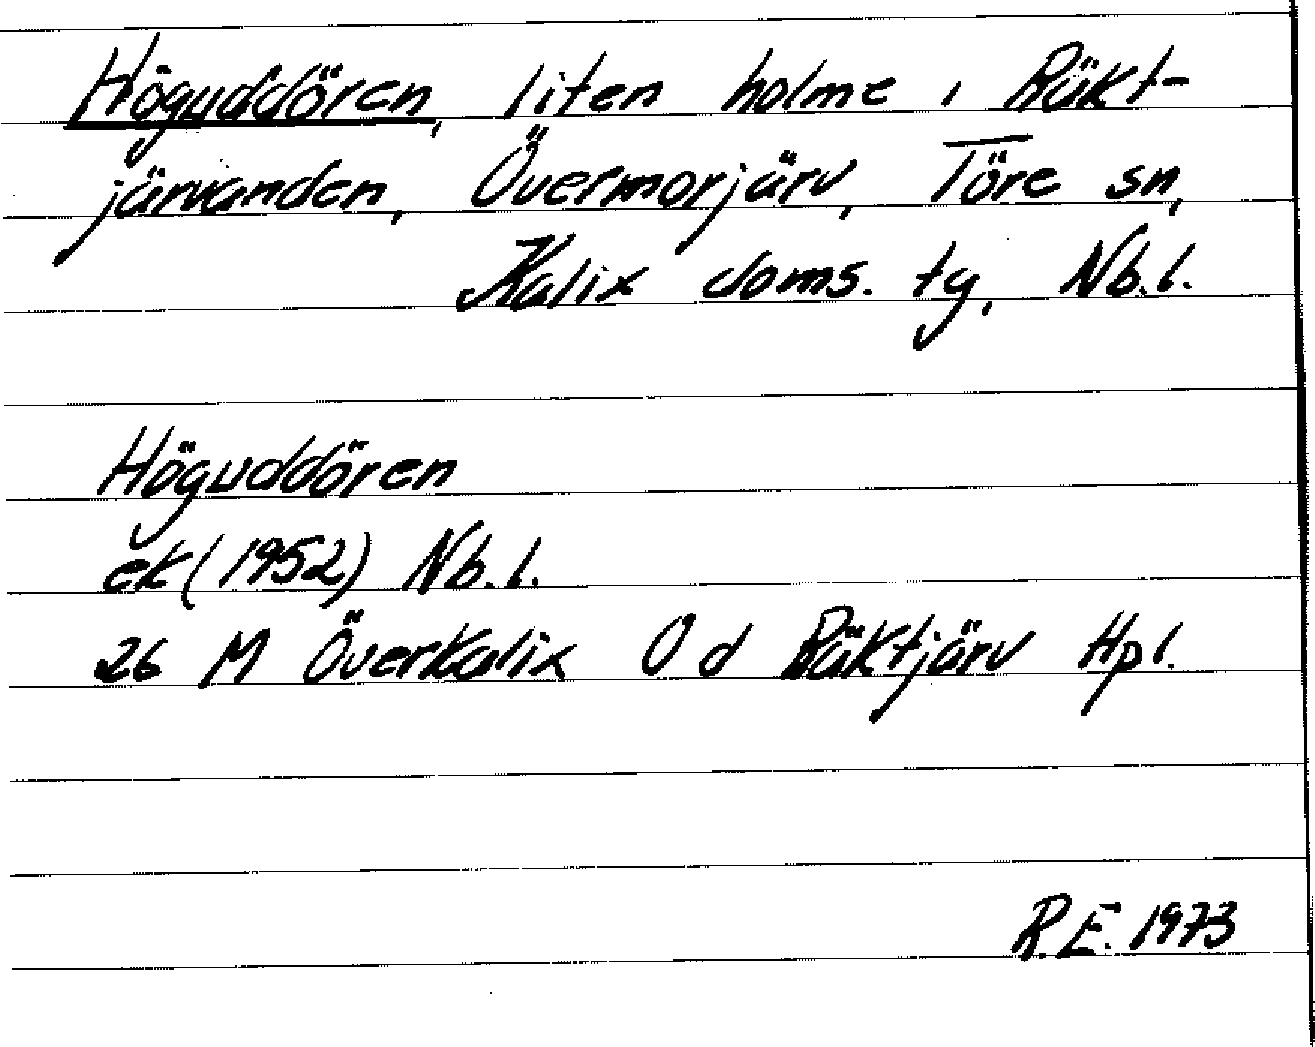 Höguddören, liten holme i Räkt-
järvanden, Övermorjärv, Töre sn,
Kalix doms. tg, Nb.l.
Höguddören
ek (1952) Nb.l.
26 M Överkalix O d Räktjärv Hpl.
R.E. 1973